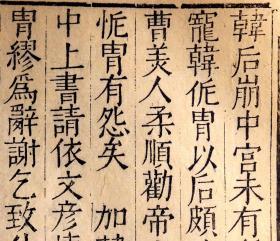 韓后崩中宮未有
寵韓侂胄以后頗
曹美人柔順勸帝
侂胄有怨矣　加韓
中上書請依文彦
胄繆爲辭謝乞致